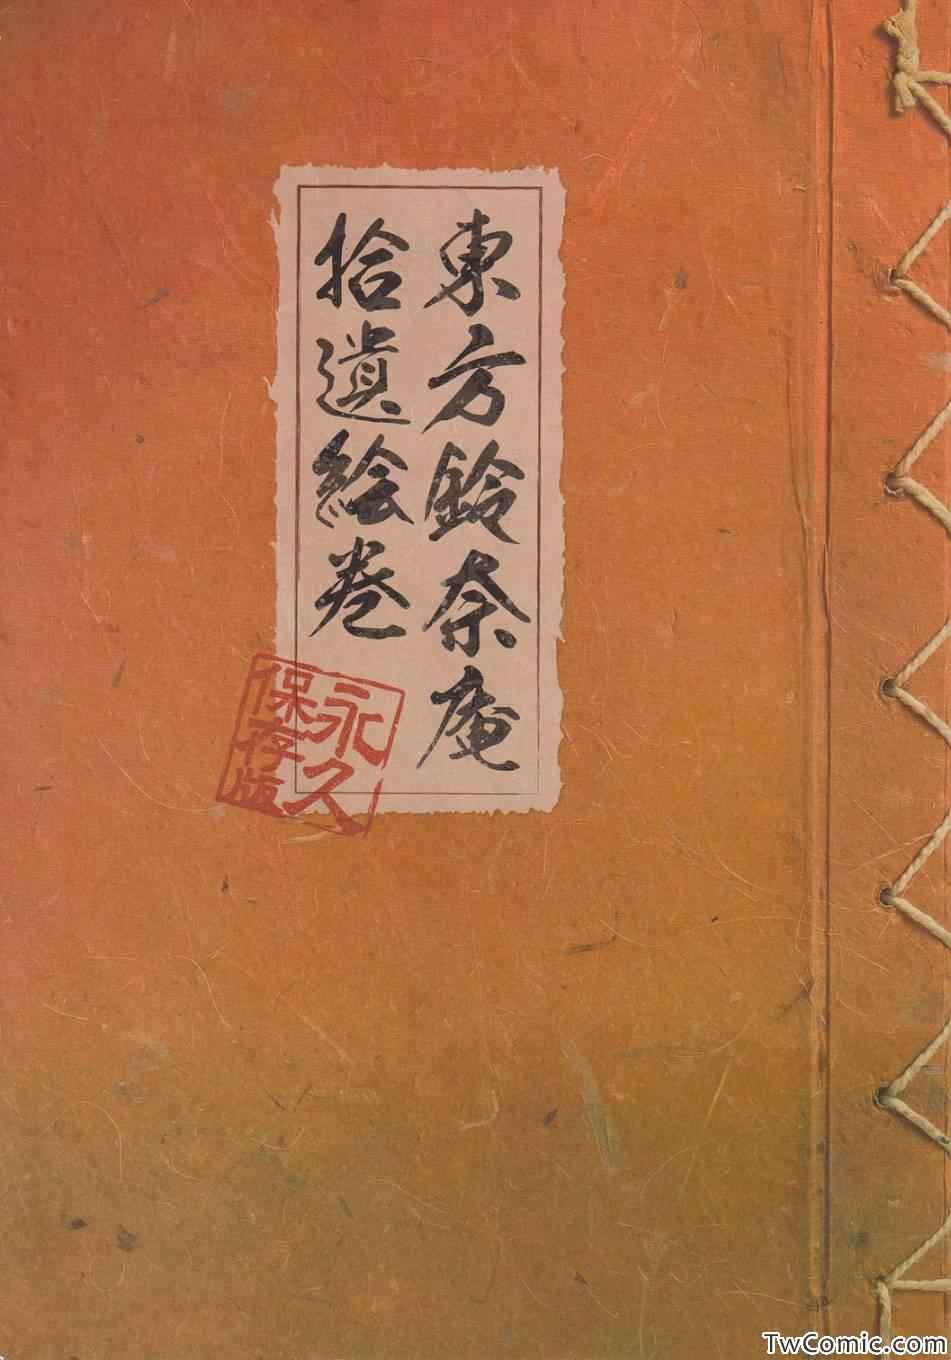 東方鈴奈庵
拾遺絵巻
永久
保存版
TwComic.com